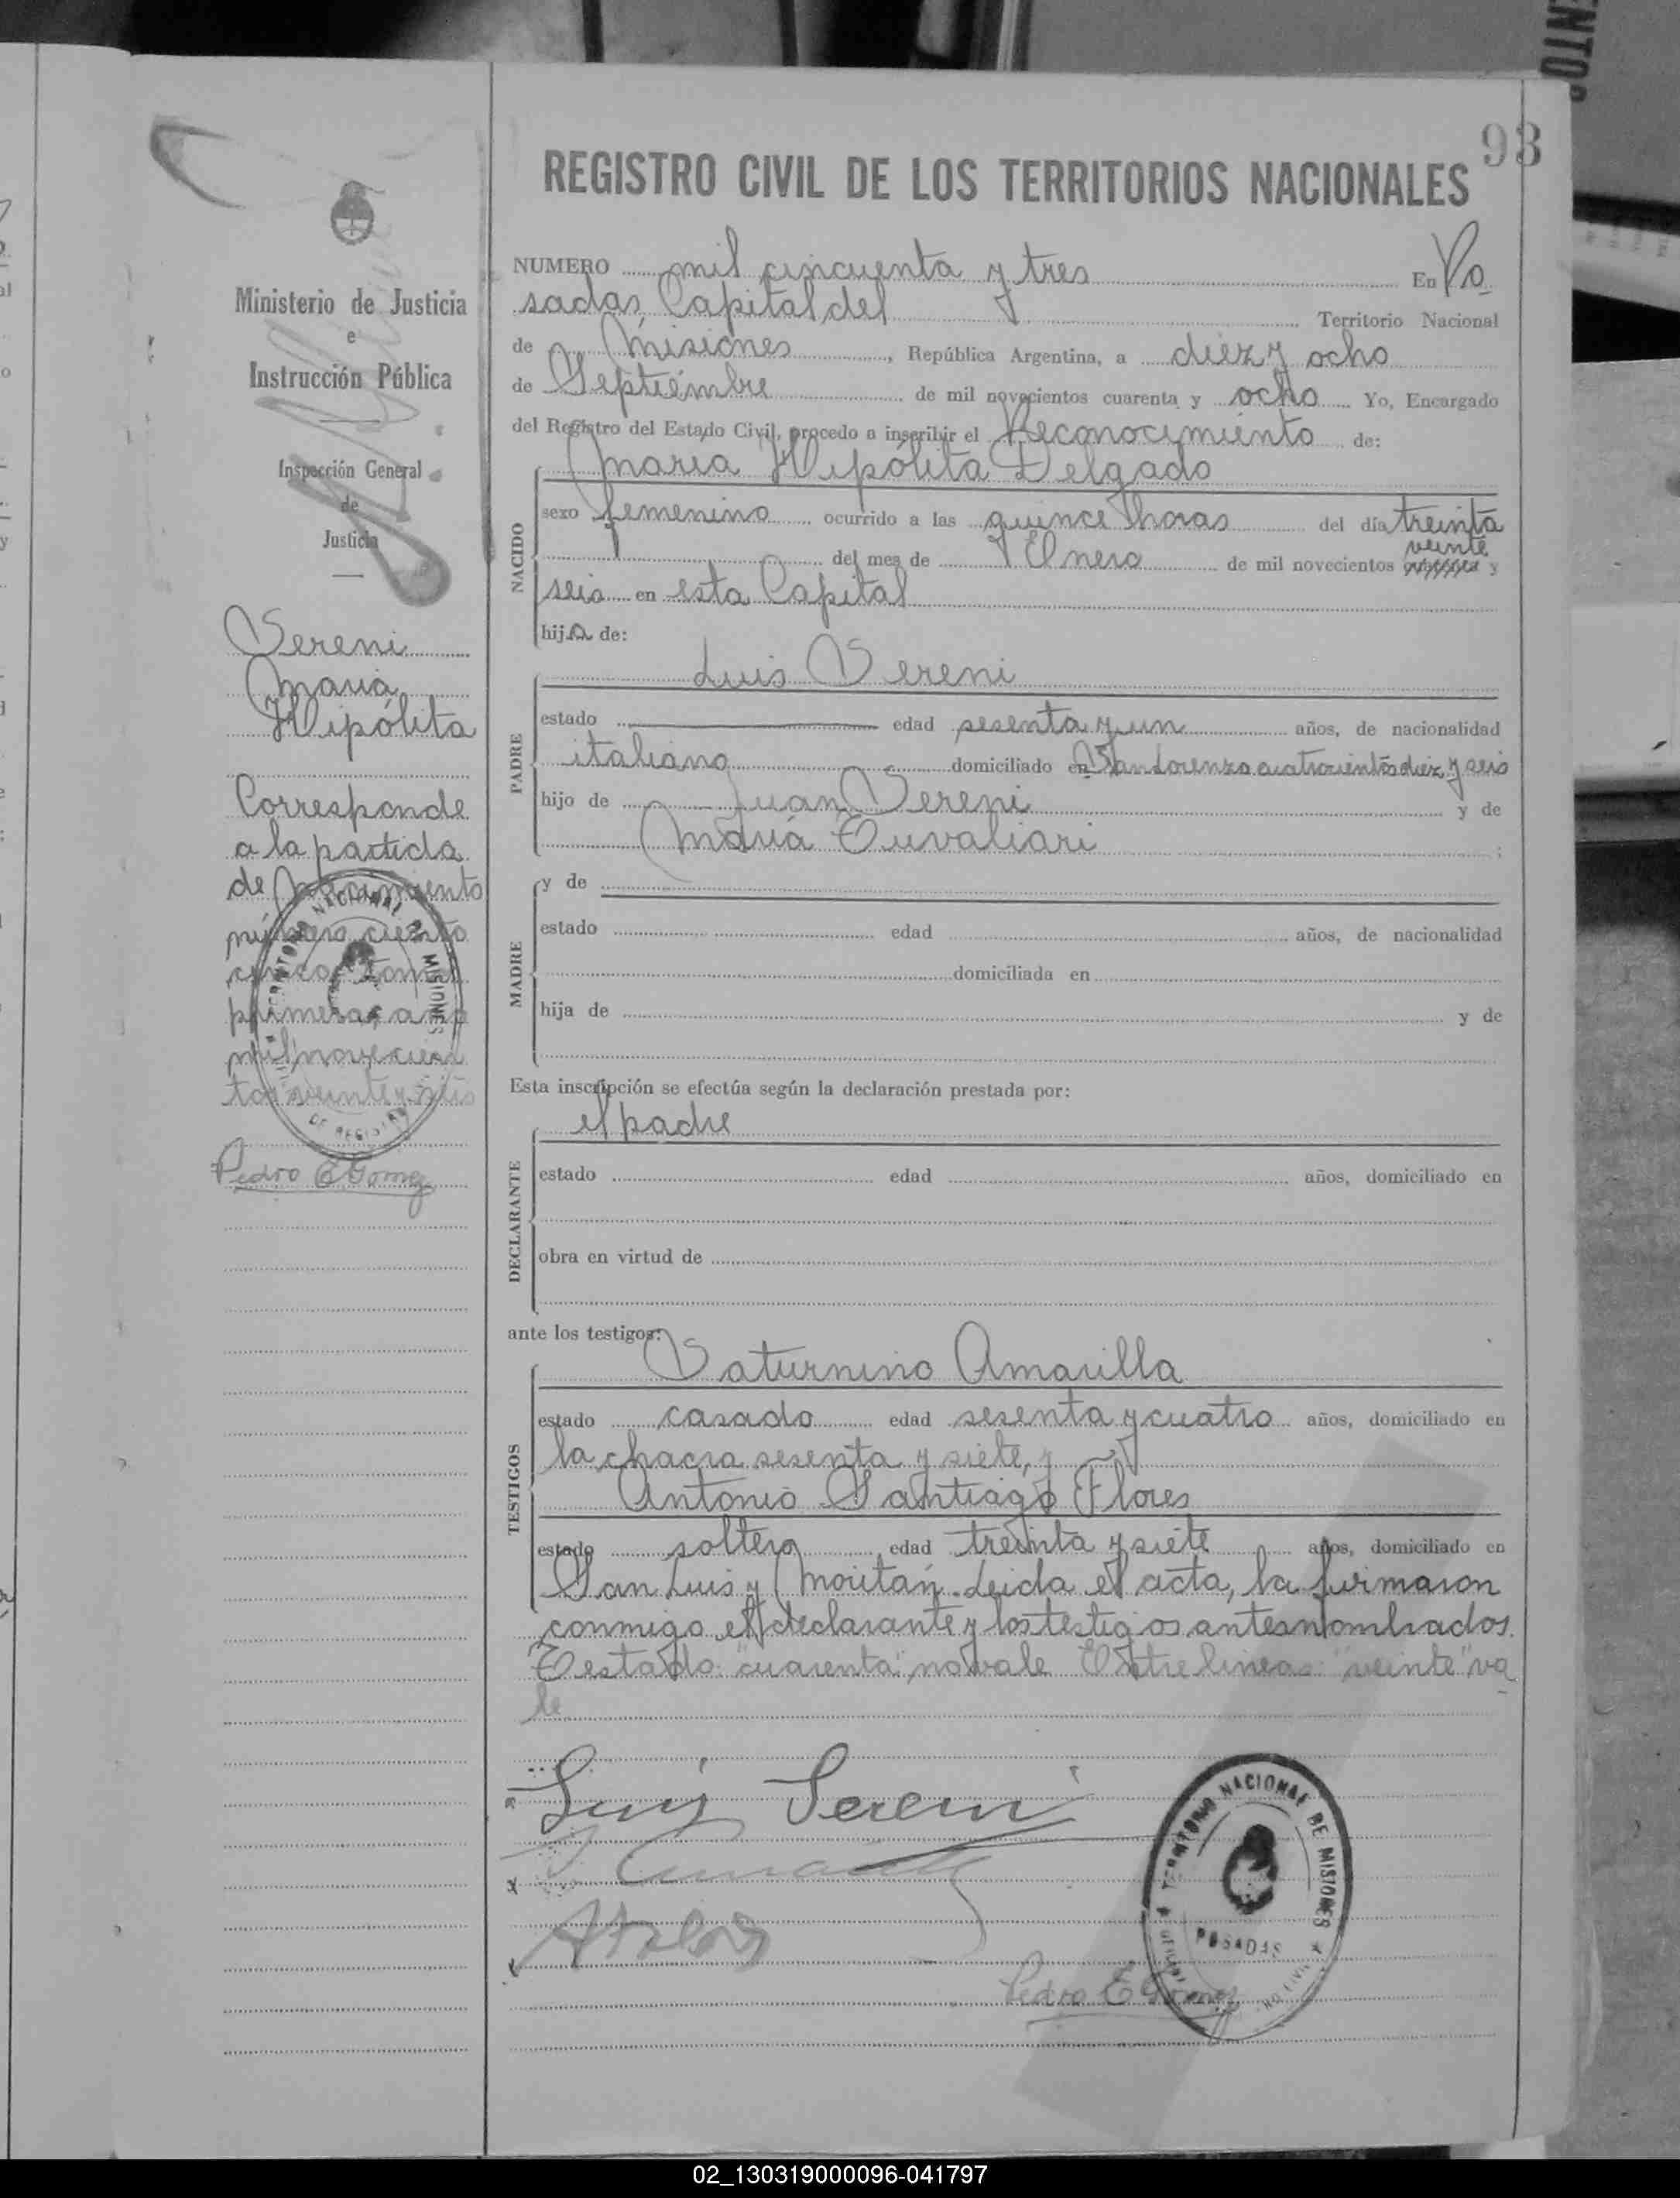 98
REGISTRO CIVIL DE LOS TERRITORIOS NACIONALES
Ministerio de Justicia
e
Instrucción Pública
Inspección General
de
Justicia
Sereni
María
Hipólita
Corresponde
a la partida
de nacimiento
número ciento
cinco tomo
primero, año
mil novecien
tos veinte y seis
Pedro E Gomez
NUMERO mil cincuenta y tres En Po
sadas, Capital del Territorio Nacional
de Misiones, República Argentina, a diez y ocho
de Septiembre de mil novecientos cuarenta y ocho Yo, Encargado
del Registro del Estado Civil, procedo a inscribir el Reconocimiento de:
María Hipólita Delgado
NACIDO
sexo femenino ocurrido a las quince horas del día treinta
veinte
del mes de Enero de mil novecientos cuarenta y
seis en esta Capital
hija de:
PADRE
Luis Sereni
estado edad sesenta y un años, de nacionalidad
italiana domiciliado en San Lorenzo cuatrocientos diez y seis
hijo de Juan Sereni y de
María Tuvaliari;
MADRE
y de
estado edad años, de nacionalidad
domiciliada en
hija de y de
Esta inscripción se efectúa según la declaración prestada por:
DECLARANTE
el padre
estado edad años, domiciliado en
obra en virtud de
ante los testigos:
TESTIGOS
Saturnino Amarilla
estado casado edad sesenta y cuatro años, domiciliado en
la chacra sesenta y siete, y
Antonio Santiago Flores
estado soltero edad treinta y siete años, domiciliado en
San Luis y Moritán. Leida el acta, la firmaron
conmigo el declarante y los testigos antes nombrados.
Testado "cuarenta" no vale Entre lineas "veinte" va
le
Luis Sereni
TERRITORIO NACIONAL DE MISIONES
POSADAS
Pedro E Gomez
02_130319000096-041797